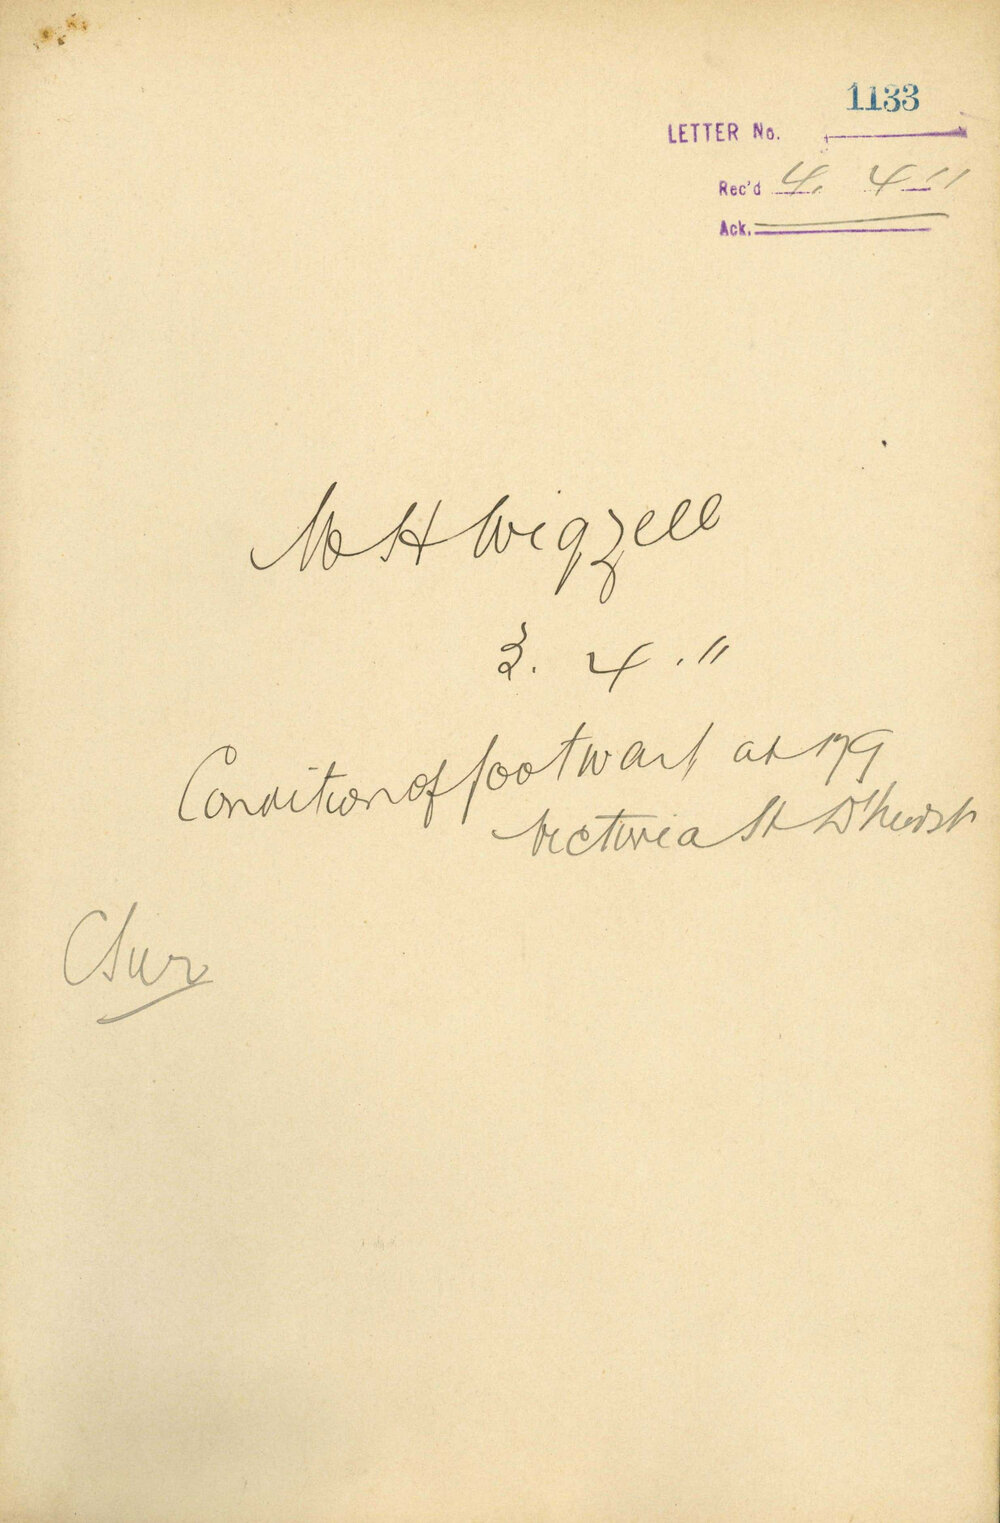 1133
LETTER No.
Rec'd 4. 4 11
Ack.
M H Wigzell
3. 4. 11
Condition of footway at 179
Victoria St D'hurst